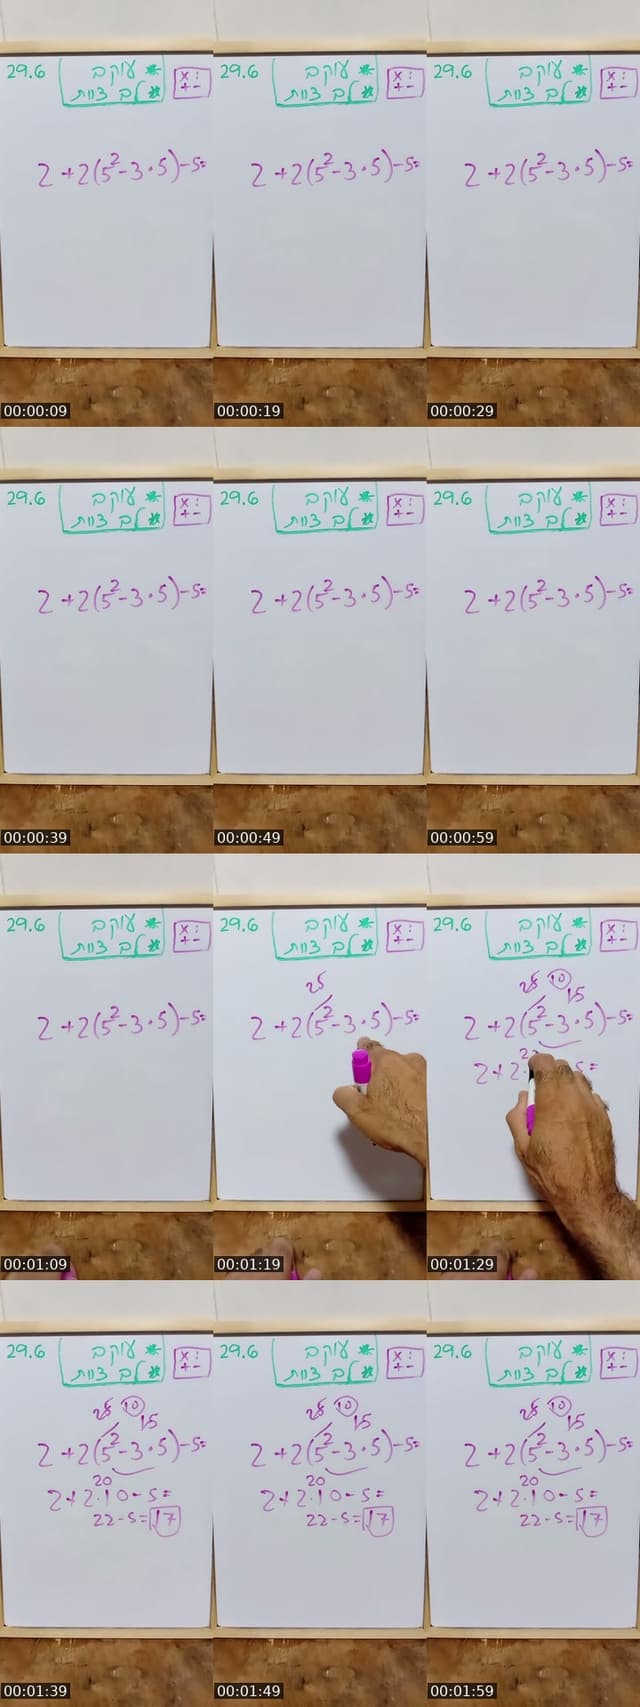 29.6
* עוקב
* לב צוות
× :
+ −
2+2(5²-3·5)-5=
00:00:09
29.6
* עוקב
* לב צוות
× :
+ −
2+2(5²-3·5)-5=
00:00:19
29.6
* עוקב
* לב צוות
× :
+ −
2+2(5²-3·5)-5=
00:00:29
29.6
* עוקב
* לב צוות
× :
+ −
2+2(5²-3·5)-5=
00:00:39
29.6
* עוקב
* לב צוות
× :
+ −
2+2(5²-3·5)-5=
00:00:49
29.6
* עוקב
* לב צוות
× :
+ −
2+2(5²-3·5)-5=
00:00:59
29.6
* עוקב
* לב צוות
× :
+ −
2+2(5²-3·5)-5=
00:01:09
29.6
* עוקב
* לב צוות
× :
+ −
25
2+2(5²-3·5)-5=
00:01:19
29.6
* עוקב
* לב צוות
× :
+ −
25 10
15
2+2(5²-3·5)-5=
2+2 5=
00:01:29
29.6
* עוקב
* לב צוות
× :
+ −
25 10
15
2+2(5²-3·5)-5=
20
2+2·10-5=
22-5=17
00:01:39
29.6
* עוקב
* לב צוות
× :
+ −
25 10
15
2+2(5²-3·5)-5=
20
2+2·10-5=
22-5=17
00:01:49
29.6
* עוקב
* לב צוות
× :
+ −
25 10
15
2+2(5²-3·5)-5=
20
2+2·10-5=
22-5=17
00:01:59